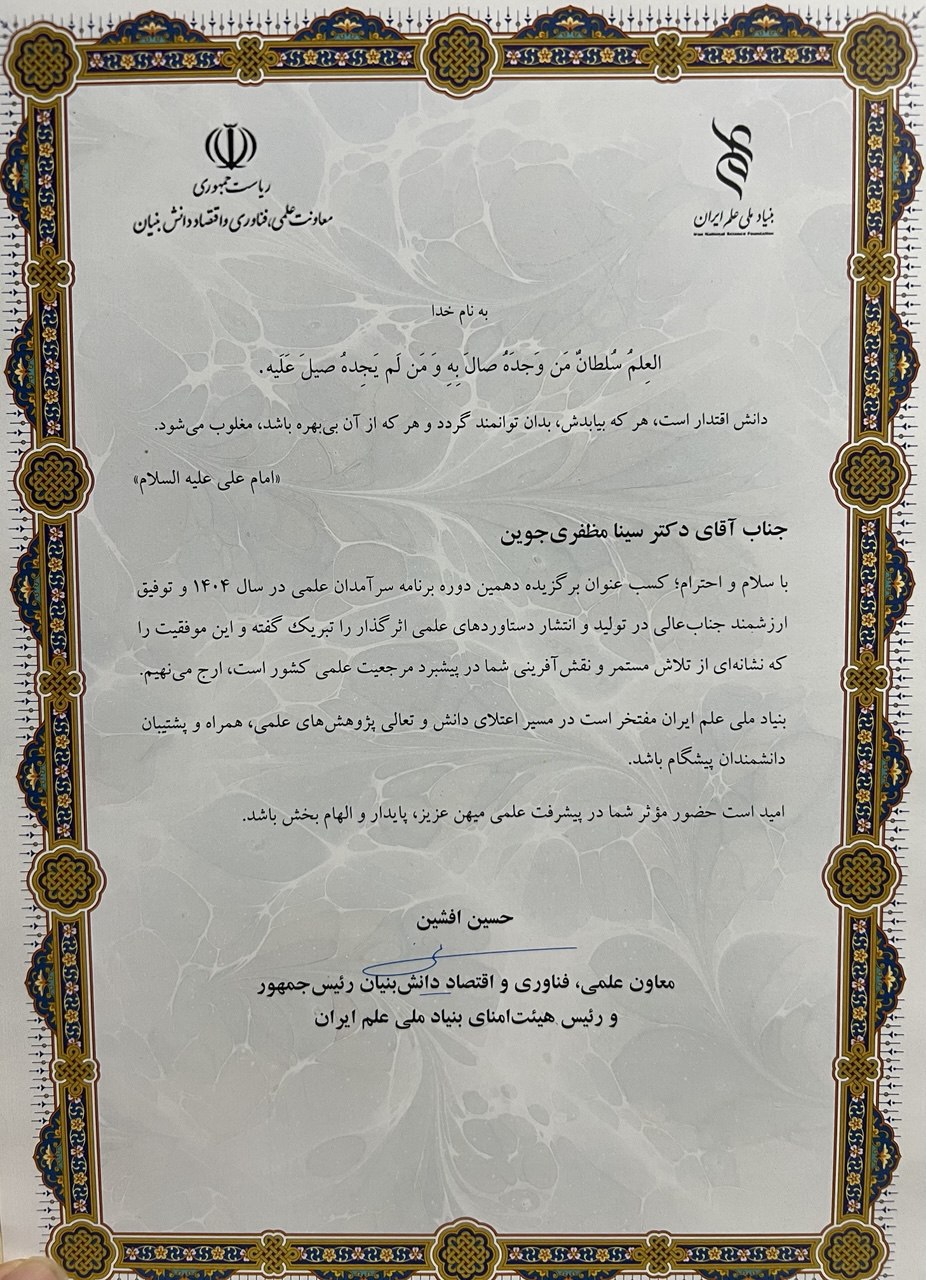 ریاست جمهوری
معاونت علمی، فناوری و اقتصاد دانش بنیان
بنیاد ملی علم ایران
Iran National Science Foundation
به نام خدا
العِلمُ سُلطانٌ مَن وَجدَهُ صالَ بِهِ وَ مَن لَم یَجِدهُ صیلَ عَلَیه.
دانش اقتدار است، هر که بیابدش، بدان توانمند گردد و هر که از آن بی‌بهره باشد، مغلوب می‌شود.
«امام علی علیه السلام»
جناب آقای دکتر سینا مظفری‌جوین
با سلام و احترام؛ کسب عنوان برگزیده دهمین دوره برنامه سرآمدان علمی در سال ۱۴۰۴ و توفیق
ارزشمند جناب‌عالی در تولید و انتشار دستاوردهای علمی اثرگذار را تبریک گفته و این موفقیت را
که نشانه‌ای از تلاش مستمر و نقش‌آفرینی شما در پیشبرد مرجعیت علمی کشور است، ارج می‌نهیم.
بنیاد ملی علم ایران مفتخر است در مسیر اعتلای دانش و تعالی پژوهش‌های علمی، همراه و پشتیبان
دانشمندان پیشگام باشد.
امید است حضور مؤثر شما در پیشرفت علمی میهن عزیز، پایدار و الهام بخش باشد.
حسین افشین
معاون علمی، فناوری و اقتصاد دانش‌بنیان رئیس‌جمهور
و رئیس هیئت‌امنای بنیاد ملی علم ایران